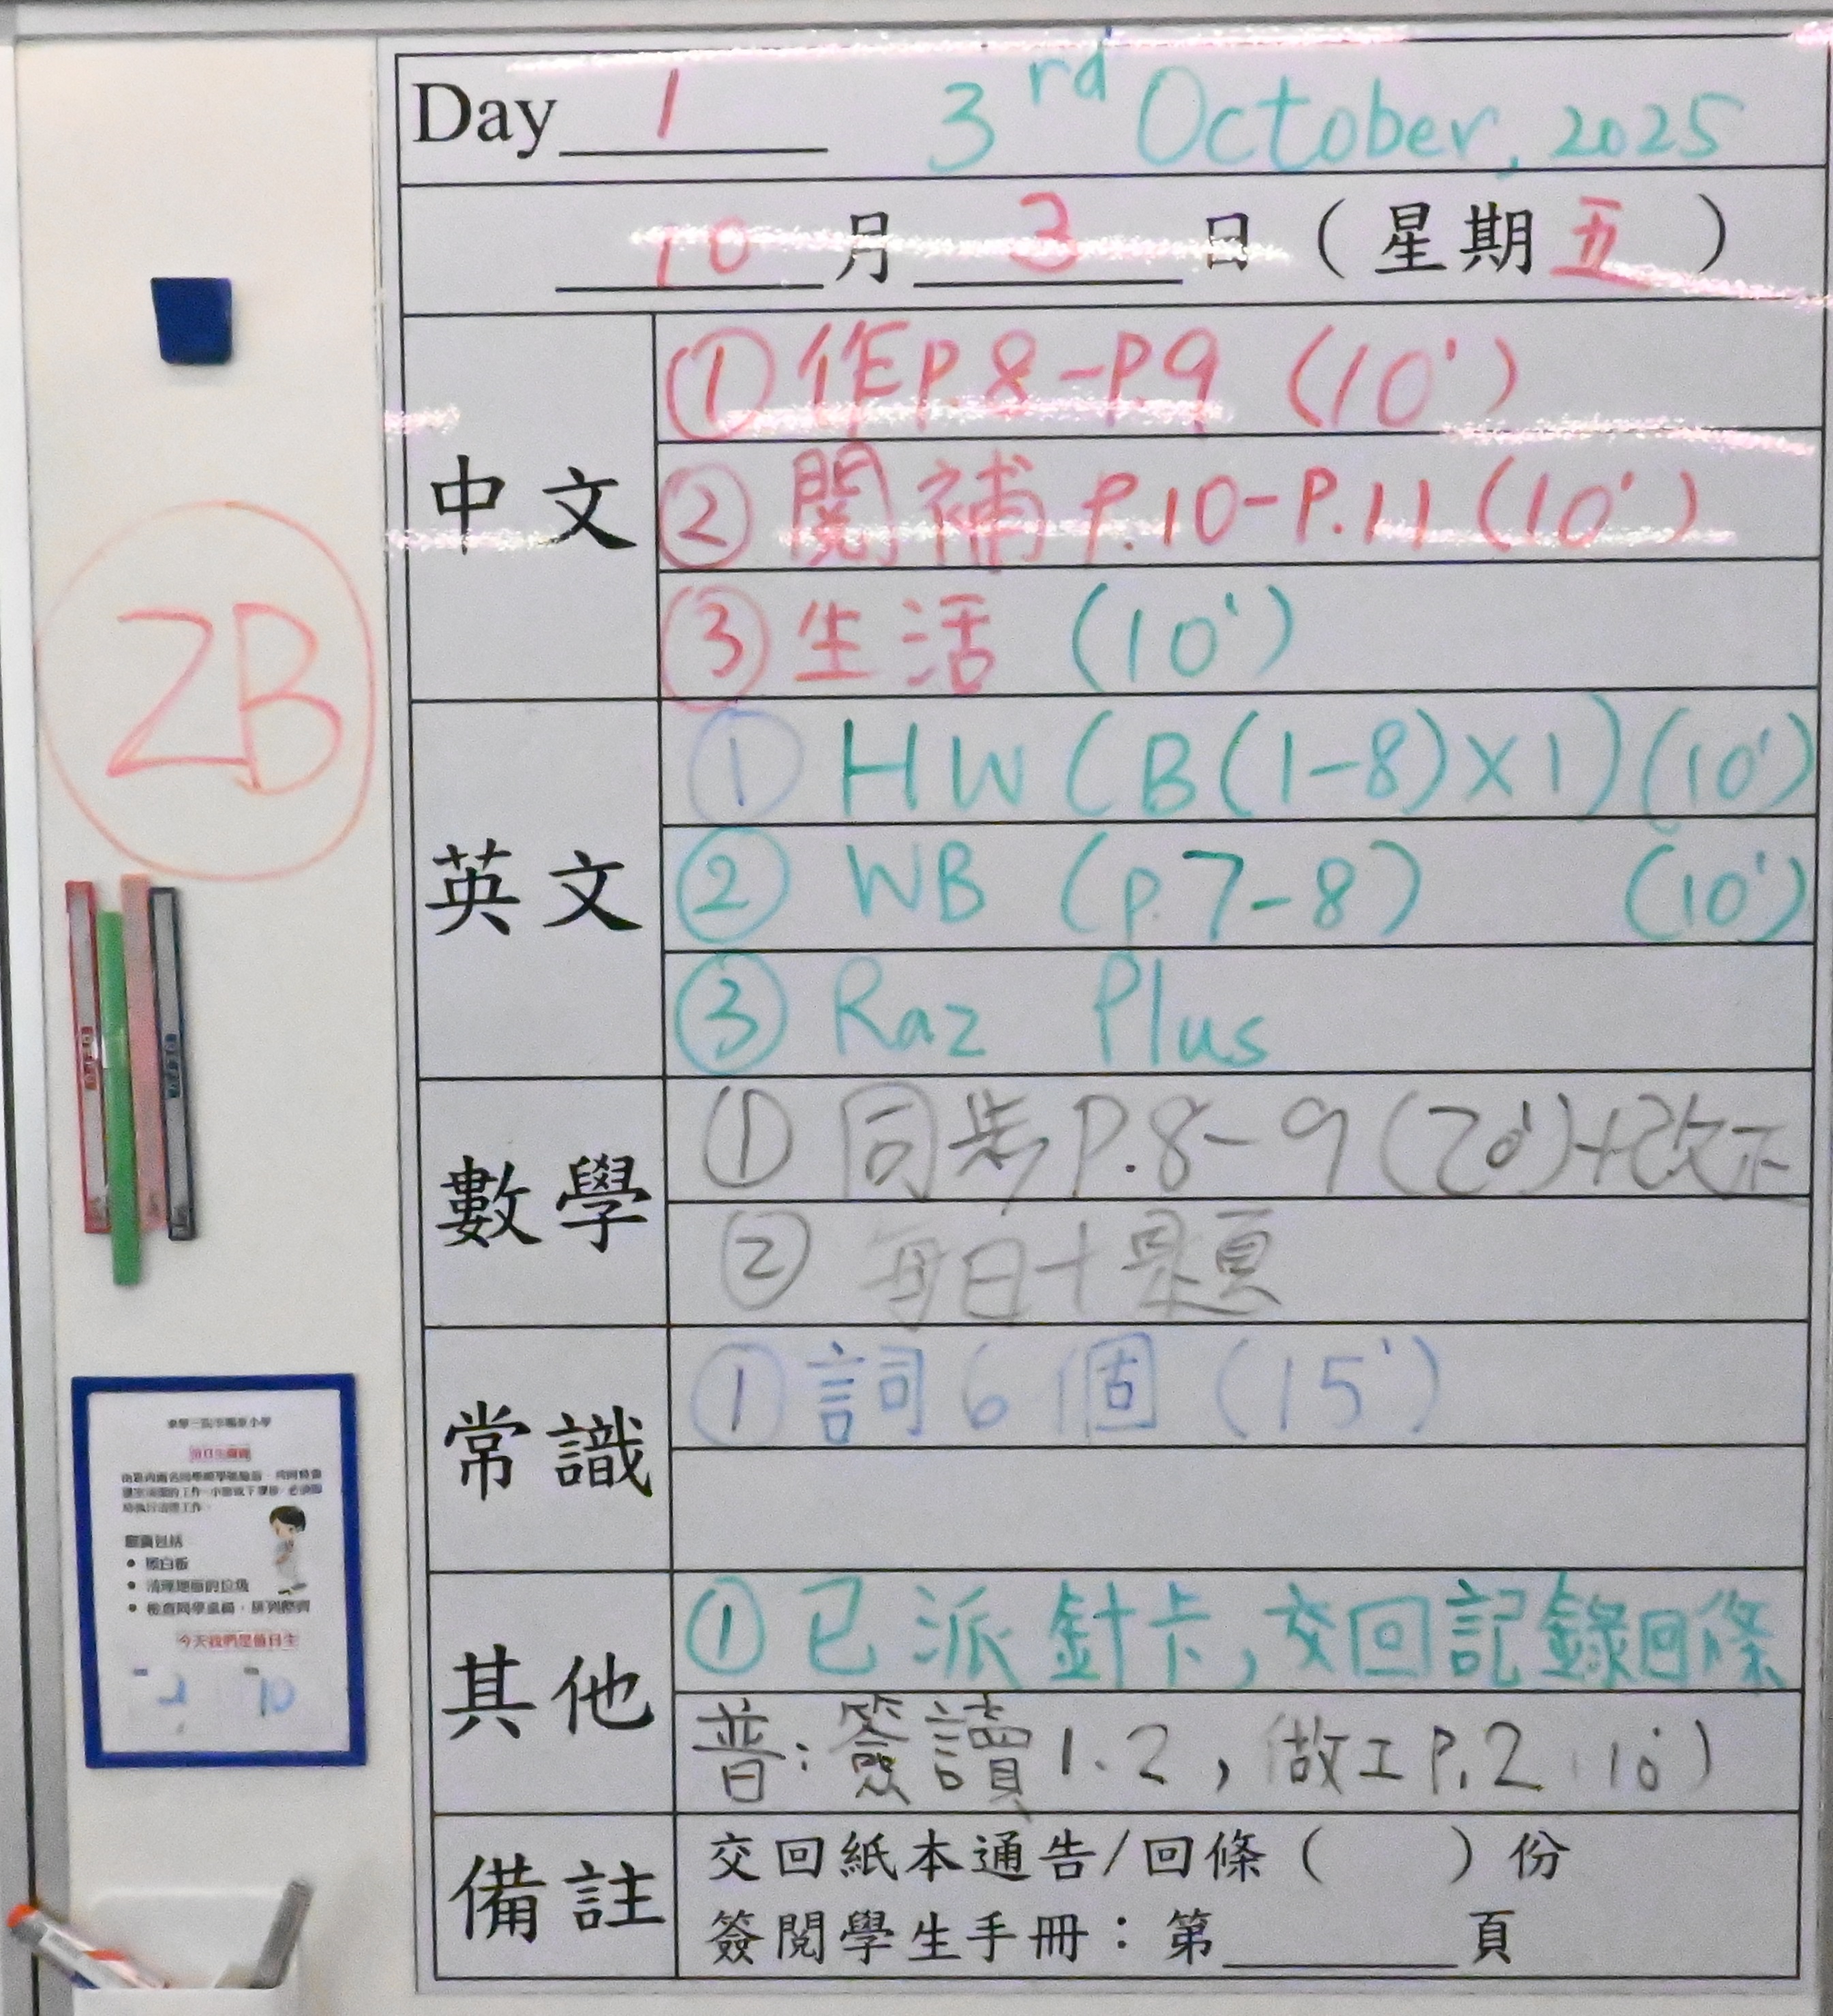 Day 1 3rd October, 2025
10月3日（星期五）
中文
① 作P.8-P.9 (10')
② 閱補 P.10-P.11 (10')
③ 生活 (10')
英文
① HW (B(1-8)×1) (10')
② WB (p.7-8) (10')
③ Raz Plus
數學
① 同步 P.8-9 (20')+改正
② 每日十題
常識
① 詞6個 (15')
其他
① 已派針卡, 交回記錄回條
普: 簽讀1.2, 做工P.2 (10')
備註
交回紙本通告/回條（　　）份
簽閱學生手冊：第______頁
2B
值日生職責
職責包括
今天我們是值日生
10